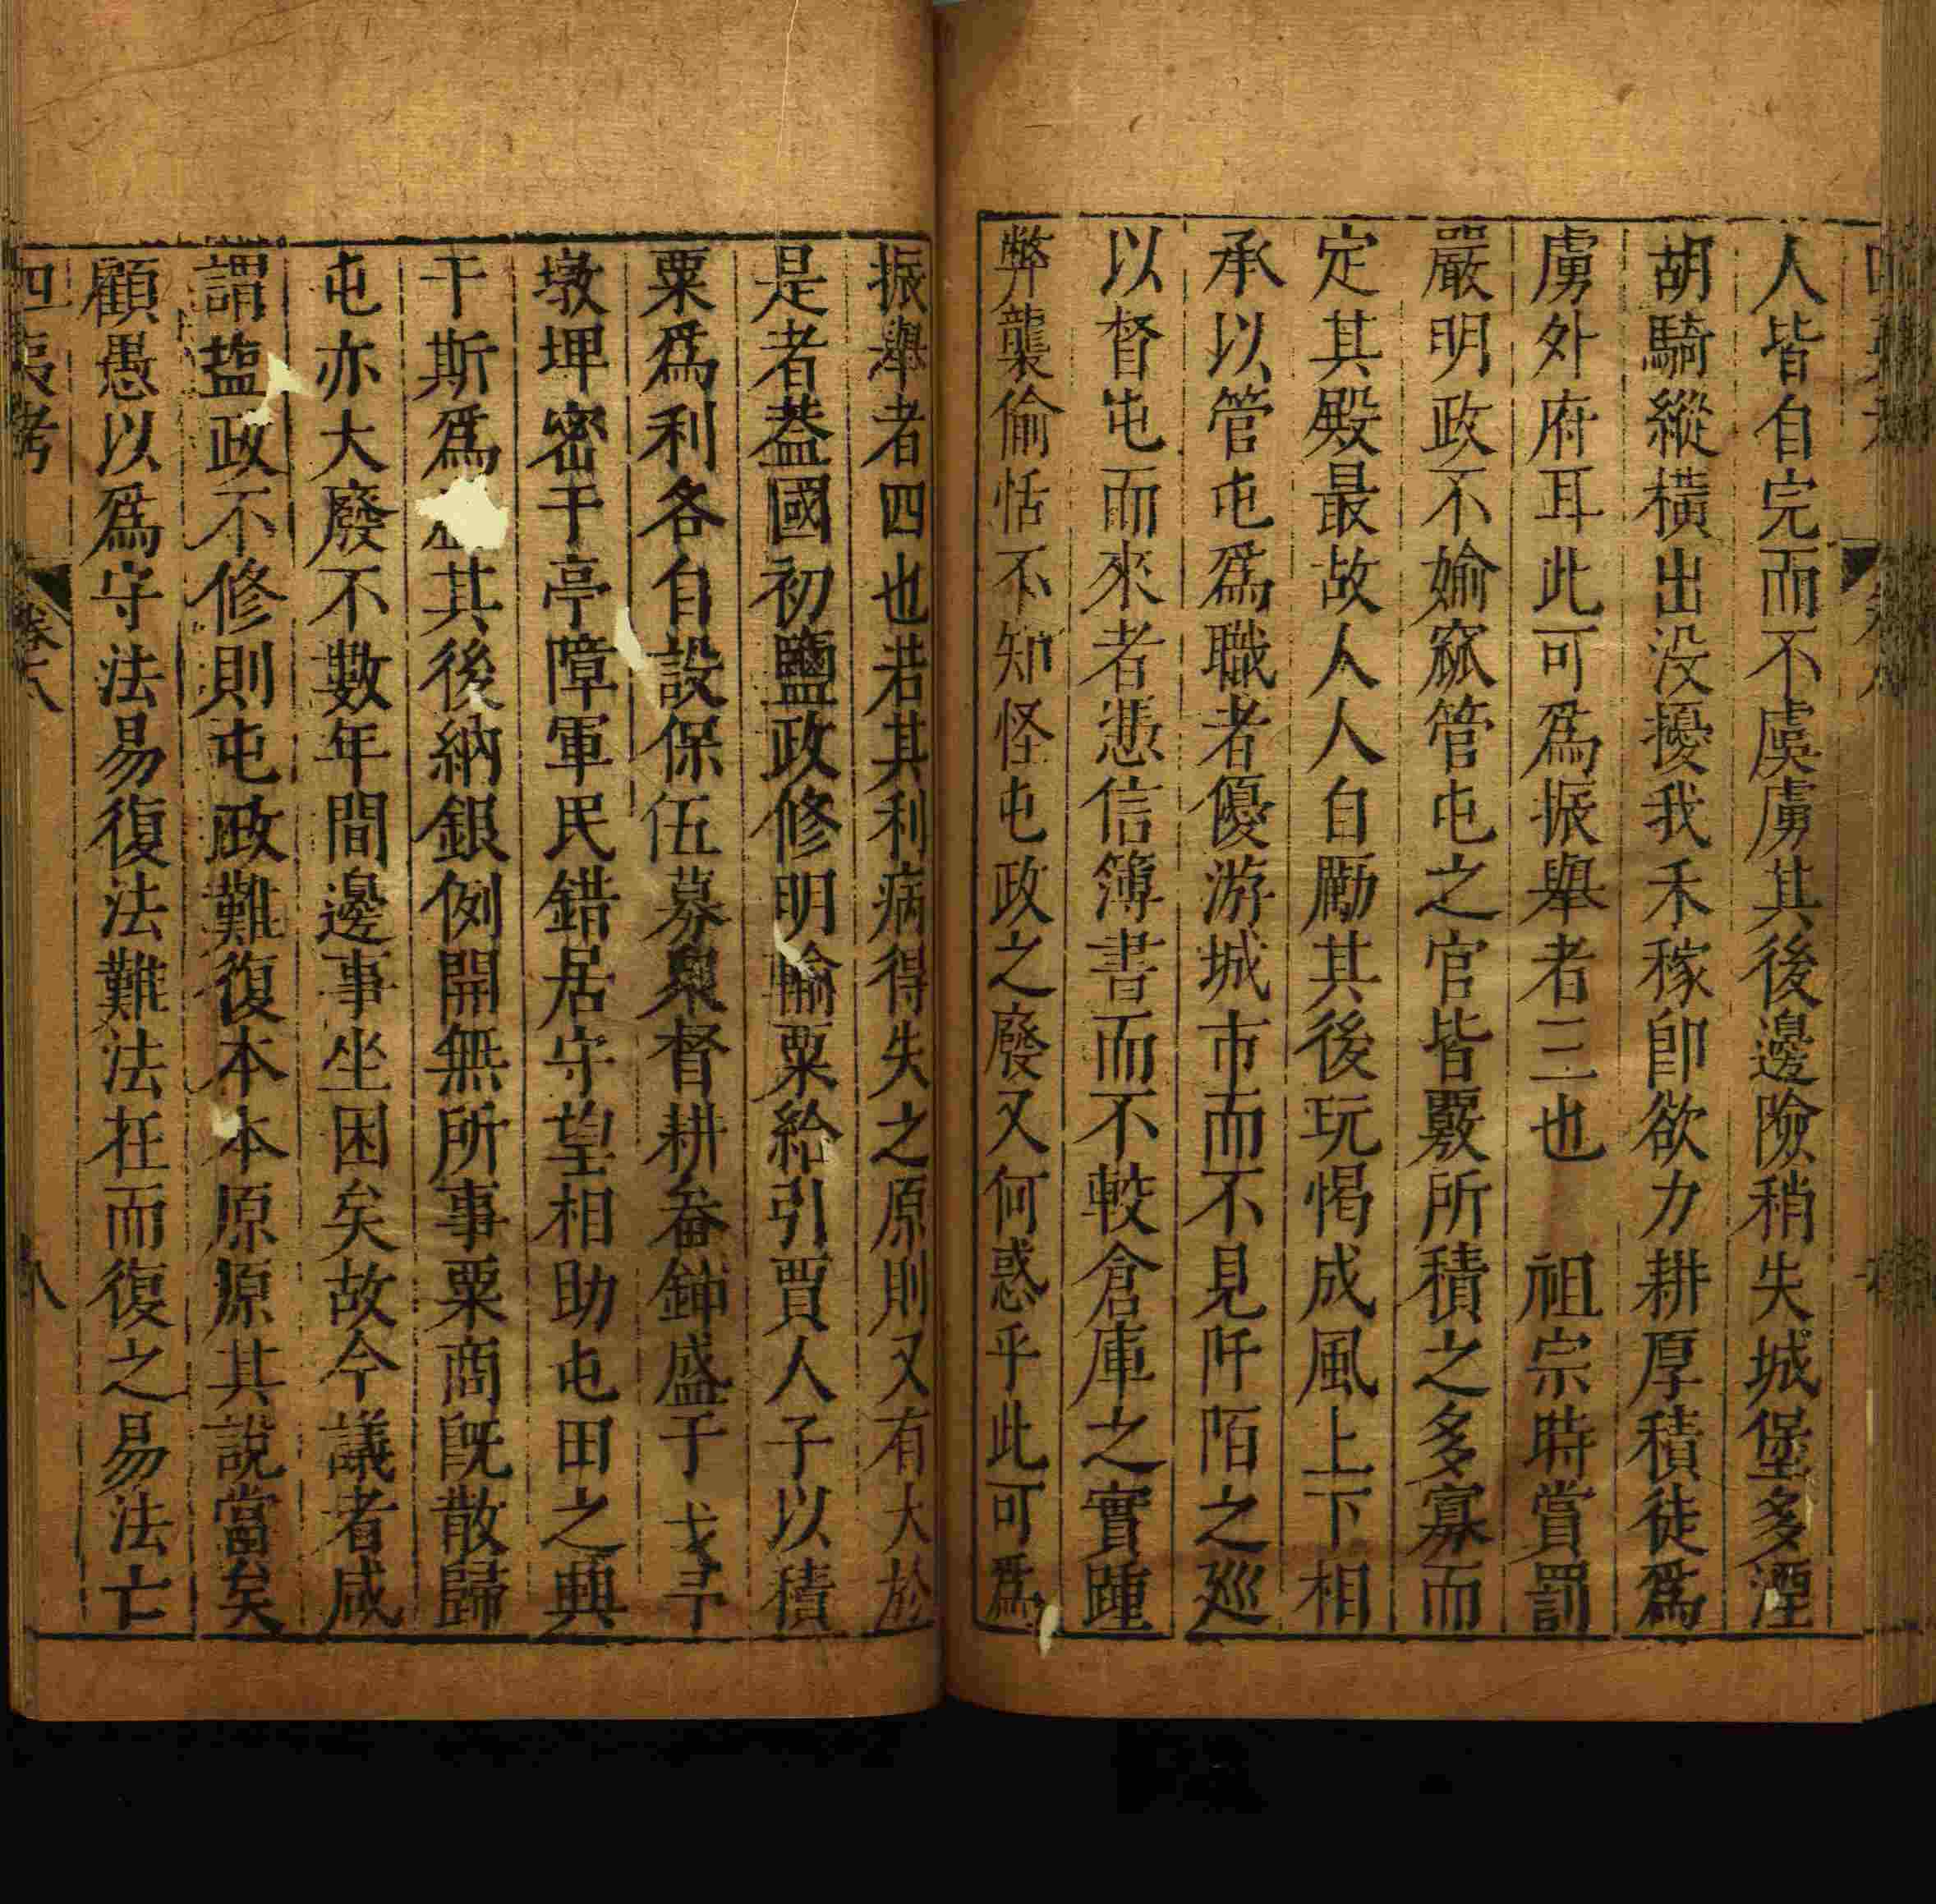 人皆自完而不虞虜其後邊險稍失城堡多湮
胡騎縱橫出没擾我禾稼卽欲力耕厚積徒爲
虜外府耳此可爲振舉者三也　祖宗時賞罰
嚴明政不媮窳管屯之官皆覈所積之多寡而
定其殿最故人人自勵其後玩愒成風上下相
承以管屯爲職者優游城市而不見阡陌之廵
以督屯而來者憑信簿書而不較倉庫之實踵
弊襲偷恬不知怪屯政之廢又何惑乎此可爲
振舉者四也若其利病得失之原則又有大於
是者葢國初鹽政修明輸粟給引賈人子以積
粟爲利各自設保伍募衆督耕畚鍤盛于戈矛
墩埤密于亭障軍民錯居守望相助屯田之興
于斯爲其後納銀例開無所事粟商旣散歸
屯亦大廢不數年間邊事坐困矣故今議者咸
謂盬政不修則屯政難復本本原原其說當矣
顧愚以爲守法易復法難法在而復之易法亡
四夷考
卷之八
八